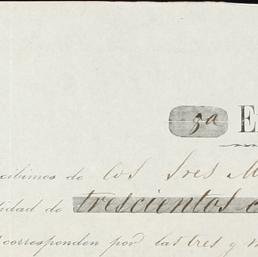 3a E
cibimos de los Sres M
tidad de trescientos c
corresponden por las tres y